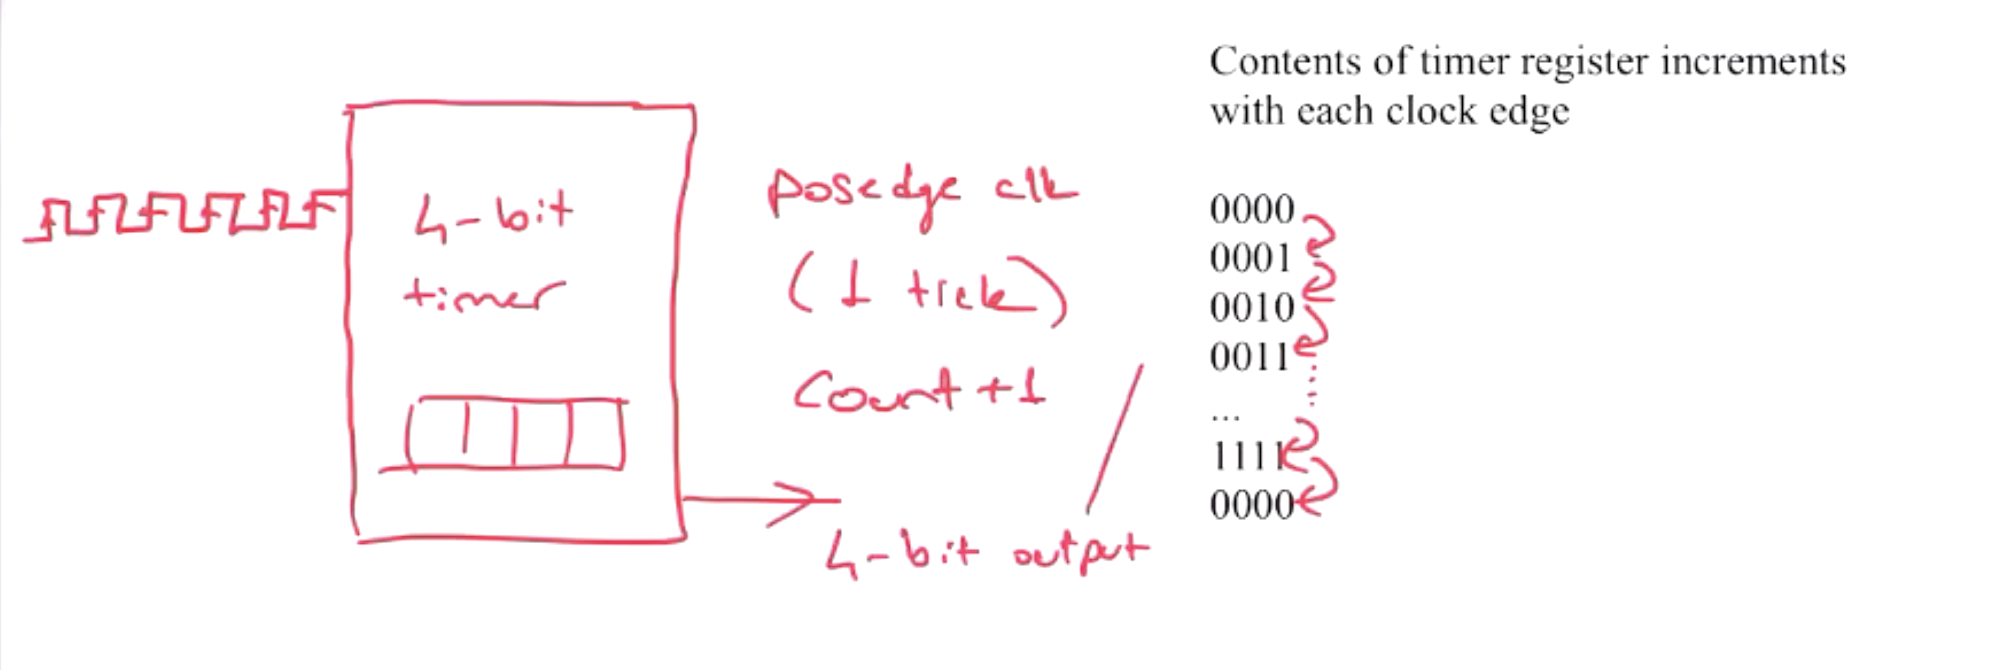 4-bit
timer
posedge clk
(1 tick)
Count +1
4-bit output
Contents of timer register increments
with each clock edge
0000
0001
0010
0011
...
1111
0000